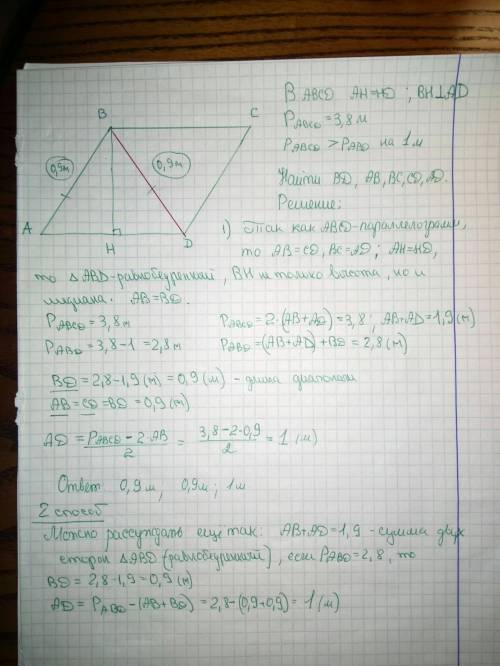 В ABCD AH=HD ; BH⊥AD
P ABCD = 3,8 м
P ABCD > P ABD на 1 м
Найти BD, AB, BC, CD, AD.
Решение:
B
C
0,9м
0,9м
A
H
D
1) Так как ABCD-параллелограмм,
то AB=CD, BC=AD; AH=HD,
то △ABD-равнобедренный, BH не только высота, но и
медиана. AB=BD.
P ABCD = 3,8 м P ABCD = 2·(AB+AD) = 3,8; AB+AD=1,9 (м)
P ABD = 3,8-1 = 2,8 м P ABD = (AB+AD)+BD = 2,8 (м)
BD = 2,8-1,9 (м) = 0,9 (м) - длина диагонали
AB = CD = BD = 0,9 (м)
AD = (P ABCD - 2·AB)/2 = (3,8-2·0,9)/2 = 1 (м)
Ответ 0,9 м, 0,9м; 1м
2 способ
Можно рассуждать еще так: AB+AD=1,9 - сумма двух
сторон △ABD (равнобедренный), если P ABD = 2,8, то
BD = 2,8-1,9 = 0,9 (м)
AD = P ABD - (AB+BD) = 2,8-(0,9+0,9) = 1 (м)